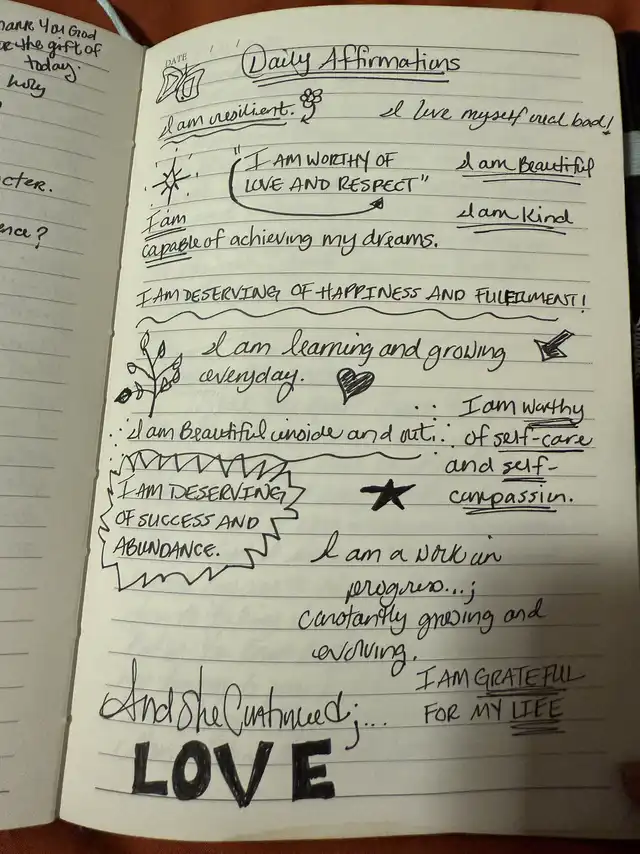 Thank You God
for the gift of
today.
holy
cter.
ence?
DATE / /
Daily Affirmations
I am resilient.
I love myself real bad!
"I AM WORTHY OF
LOVE AND RESPECT"
I am Beautiful
I am Kind
I am
capable of achieving my dreams.
I AM DESERVING OF HAPPINESS AND FULFILLMENT!
I am learning and growing
everyday.
I am Beautiful inside and out.
I am worthy
of self-care
and self-
compassion.
I AM DESERVING
OF SUCCESS AND
ABUNDANCE.
I am a work in
progress...;
constantly growing and
evolving.
I AM GRATEFUL
FOR MY LIFE
And She Continued;...
LOVE